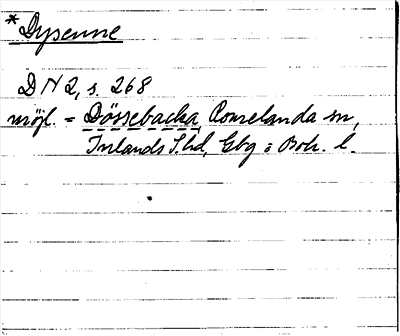 *Dysenne
DN 2, s. 268
möjl. = Dössebacka, Romelanda sn,
Inlands S. hd, Gbg o Boh. l.